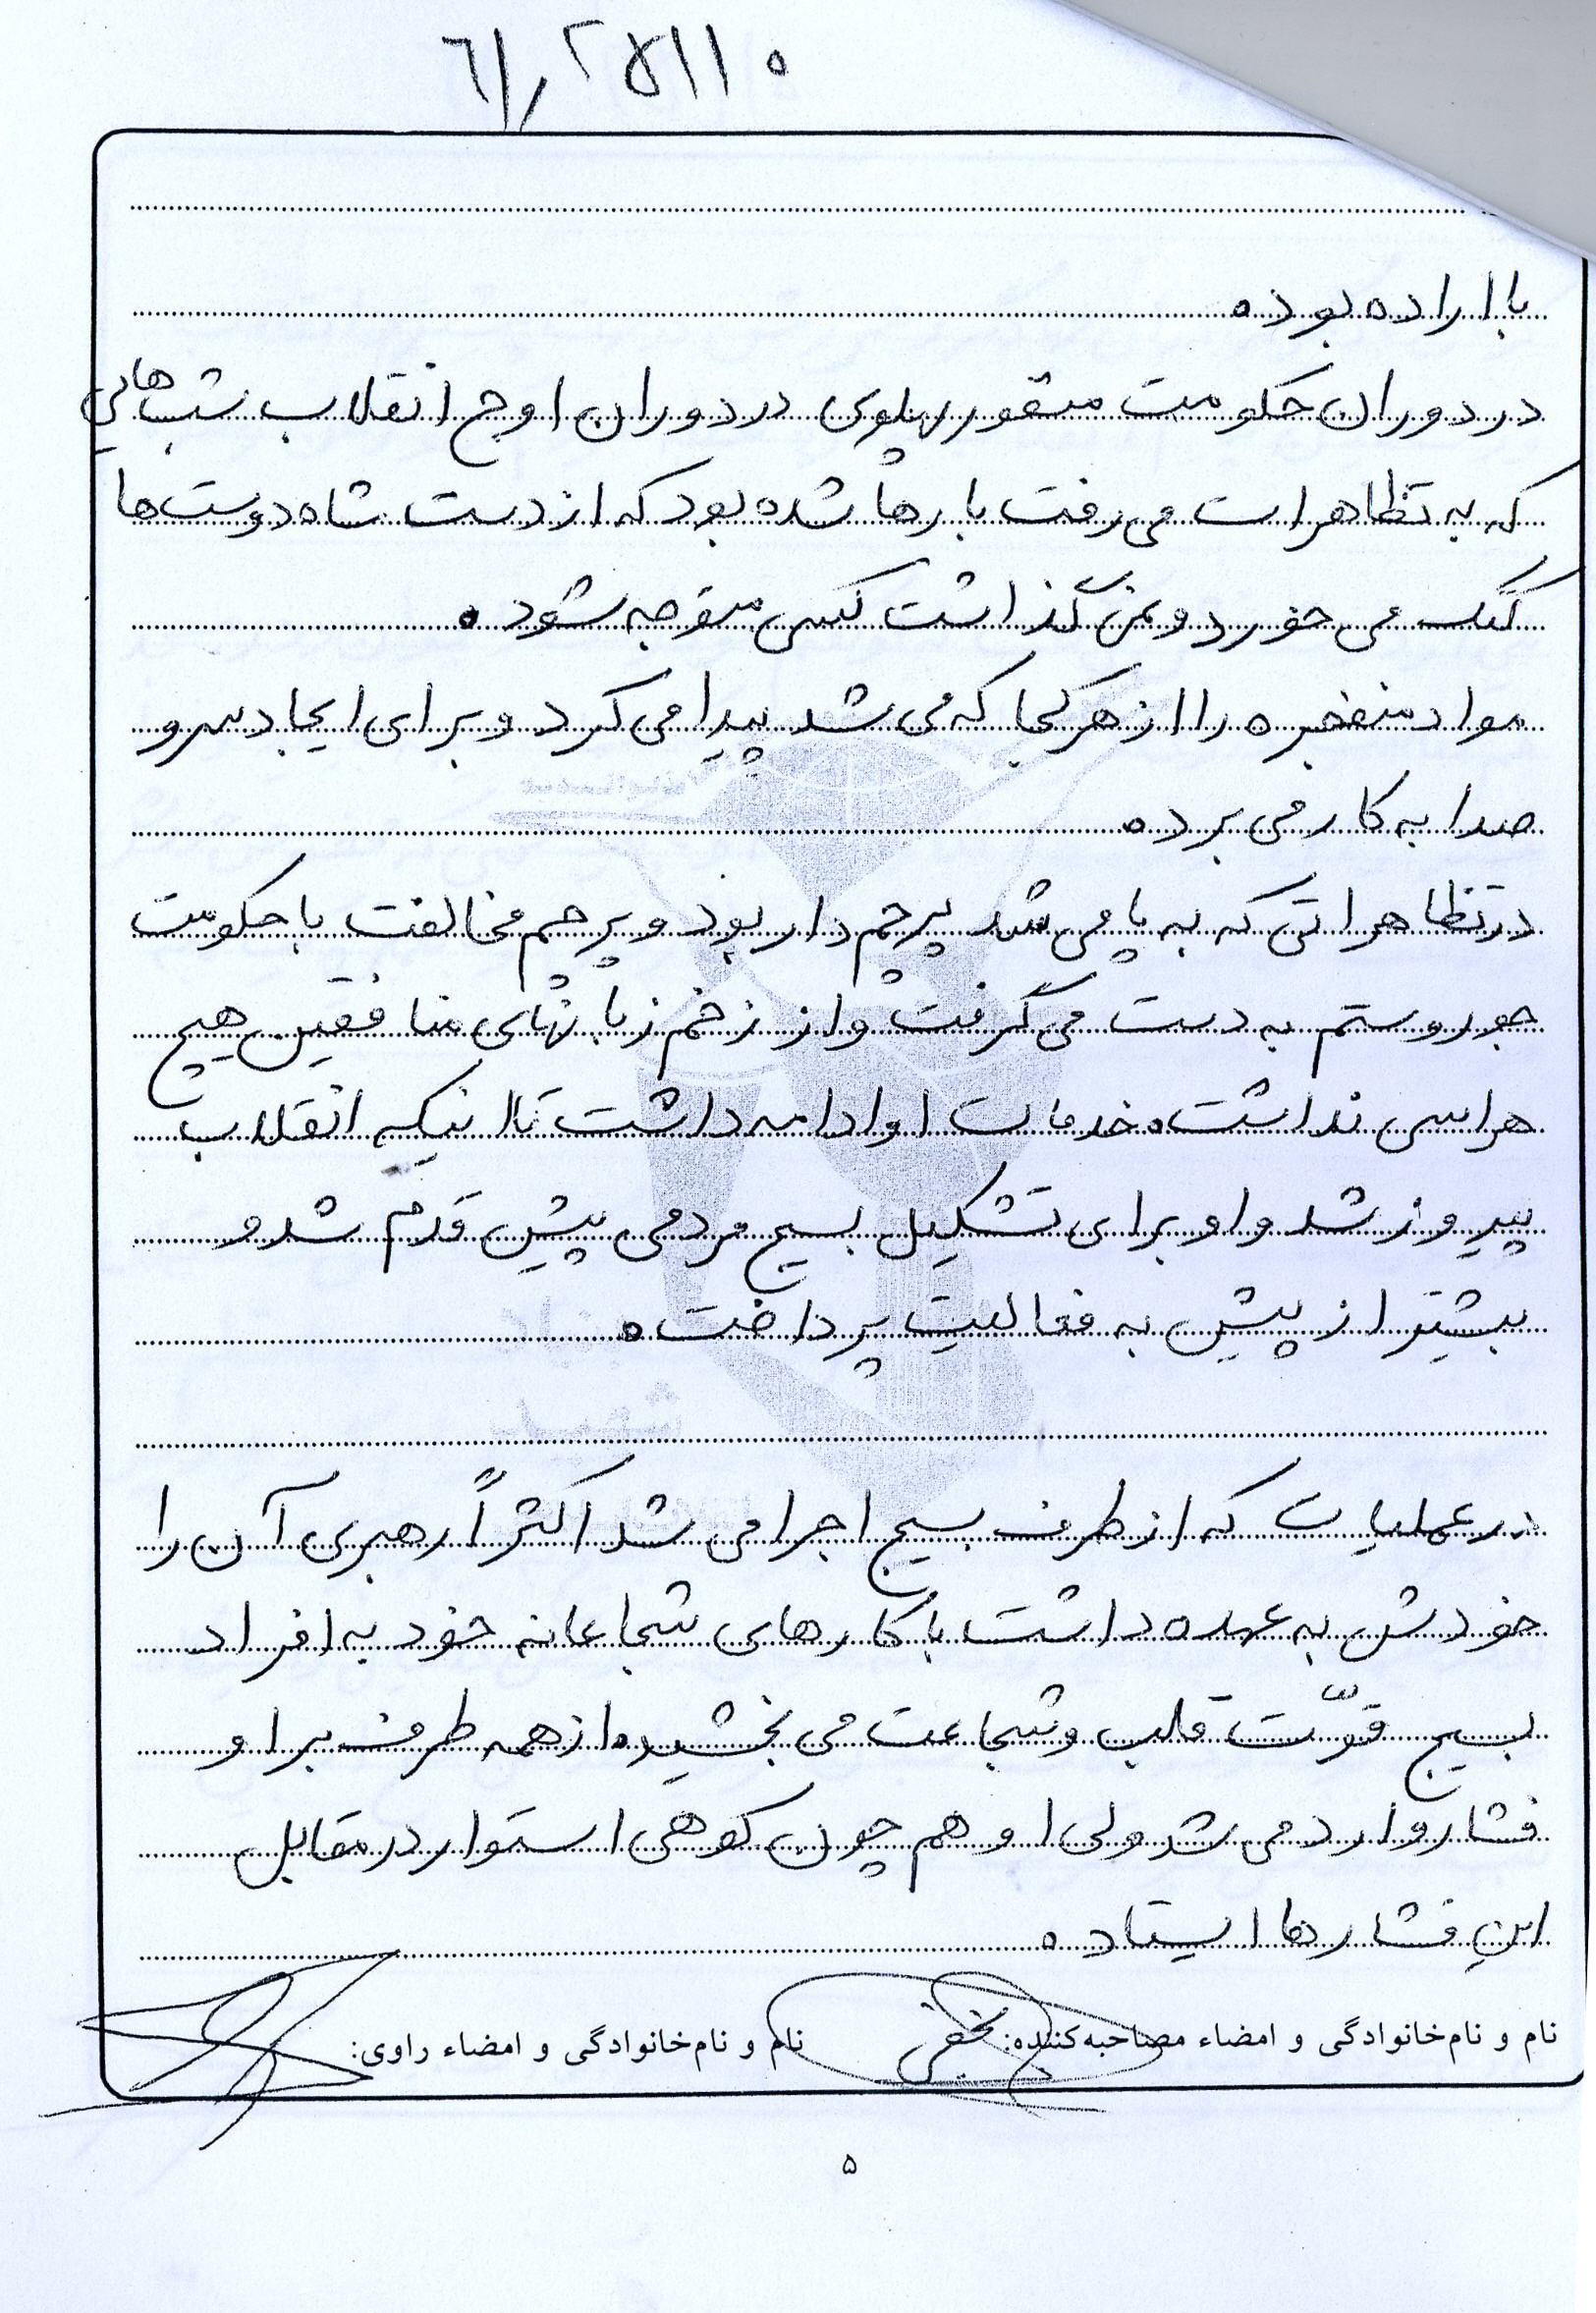 با اراده بود.
در دوران حکومت منفور پهلوی در دوران اوج انقلاب شب هایی
که به تظاهرات می رفت بارها شده بود که از دست شاه دوست ها
کتک می خورد و نمی گذاشت کسی متوجه شود.
مواد منفجره را از هر کجا که می شد پیدا می کرد و برای ایجاد سر و
صدا به کار می برد.
در تظاهراتی که به پا می شد پرچم دار بود و پرچم مخالفت با حکومت
جور و ستم به دست می گرفت و از زخم زبانهای منافقین هیچ
هراسی نداشت. خدمات او ادامه داشت تا اینکه انقلاب
پیروز شد و او برای تشکیل بسیج مردمی پیش قدم شد و
بیشتر از پیش به فعالیت پرداخت.
در عملیات که از طرف بسیج اجرا می شد اکثراً رهبری آن را
خودش به عهده داشت با کارهای شجاعانه خود به افراد
بسیج قوّت قلب و شجاعت می بخشید. از همه طرف بر او
فشار وارد می شد ولی او هم چون کوهی استوار در مقابل
این فشارها ایستاد.
نام و نام‌خانوادگی و امضاء مصاحبه‌کننده:
نام و نام‌خانوادگی و امضاء راوی:
۵